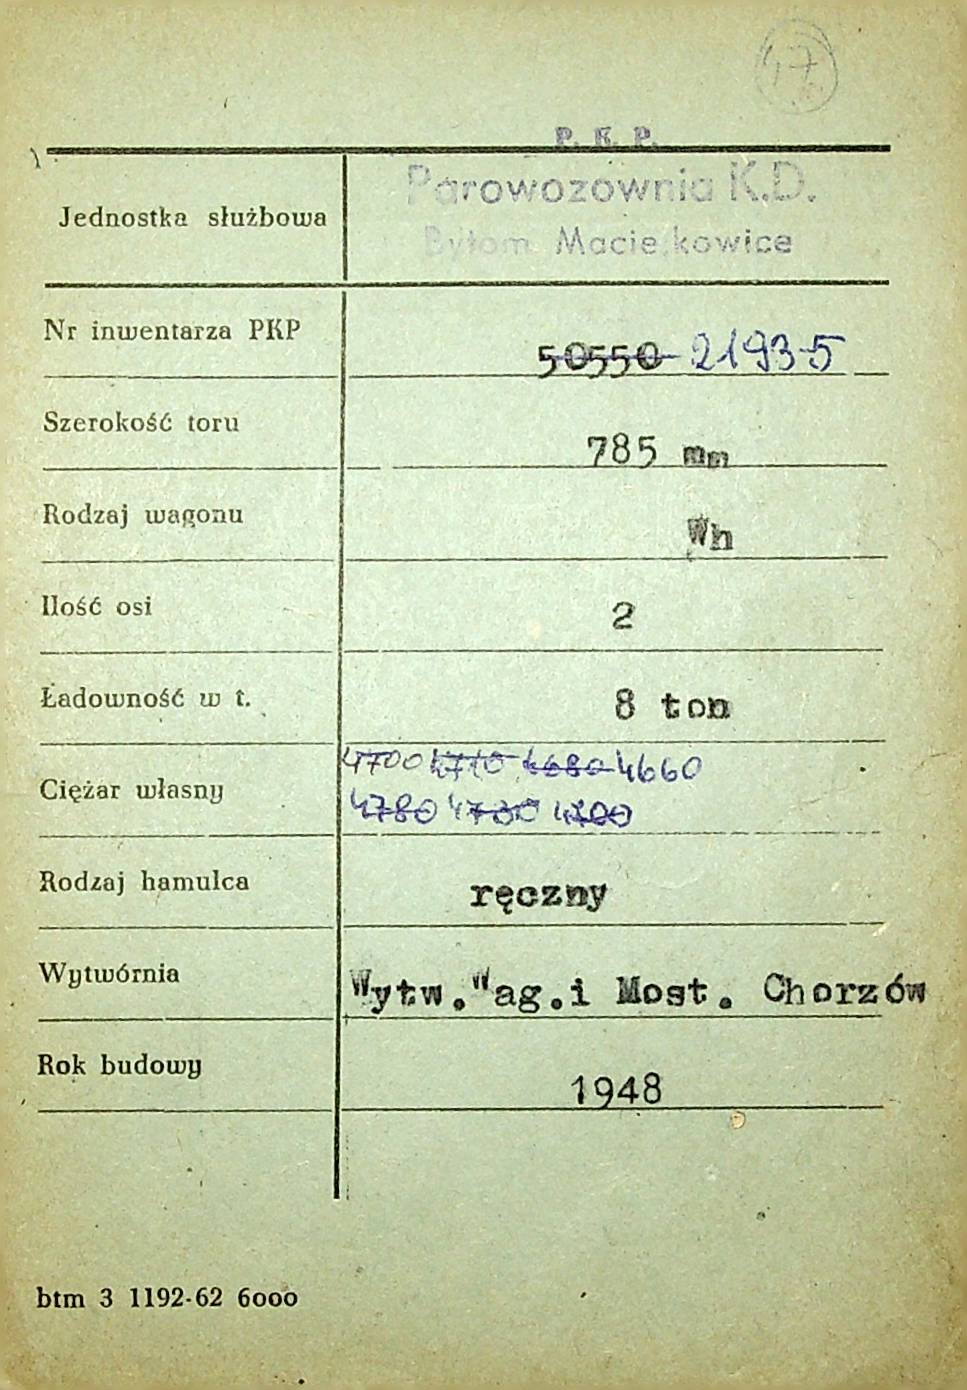 17
P. K. P.
Parowozownia K.D.
Jednostka służbowa
Bytom Maciejkowice
Nr inwentarza PKP
50550 2193-5
Szerokość toru
785 mm
Rodzaj wagonu
Wh
Ilość osi
2
Ładowność w t.
8 ton
4700 4710 4680 4660
Ciężar własny
4780 4730 4700
Rodzaj hamulca
ręczny
Wytwórnia
Wytw.Wag.i Most. Chorzów
Rok budowy
1948
btm 3 1192-62 6000